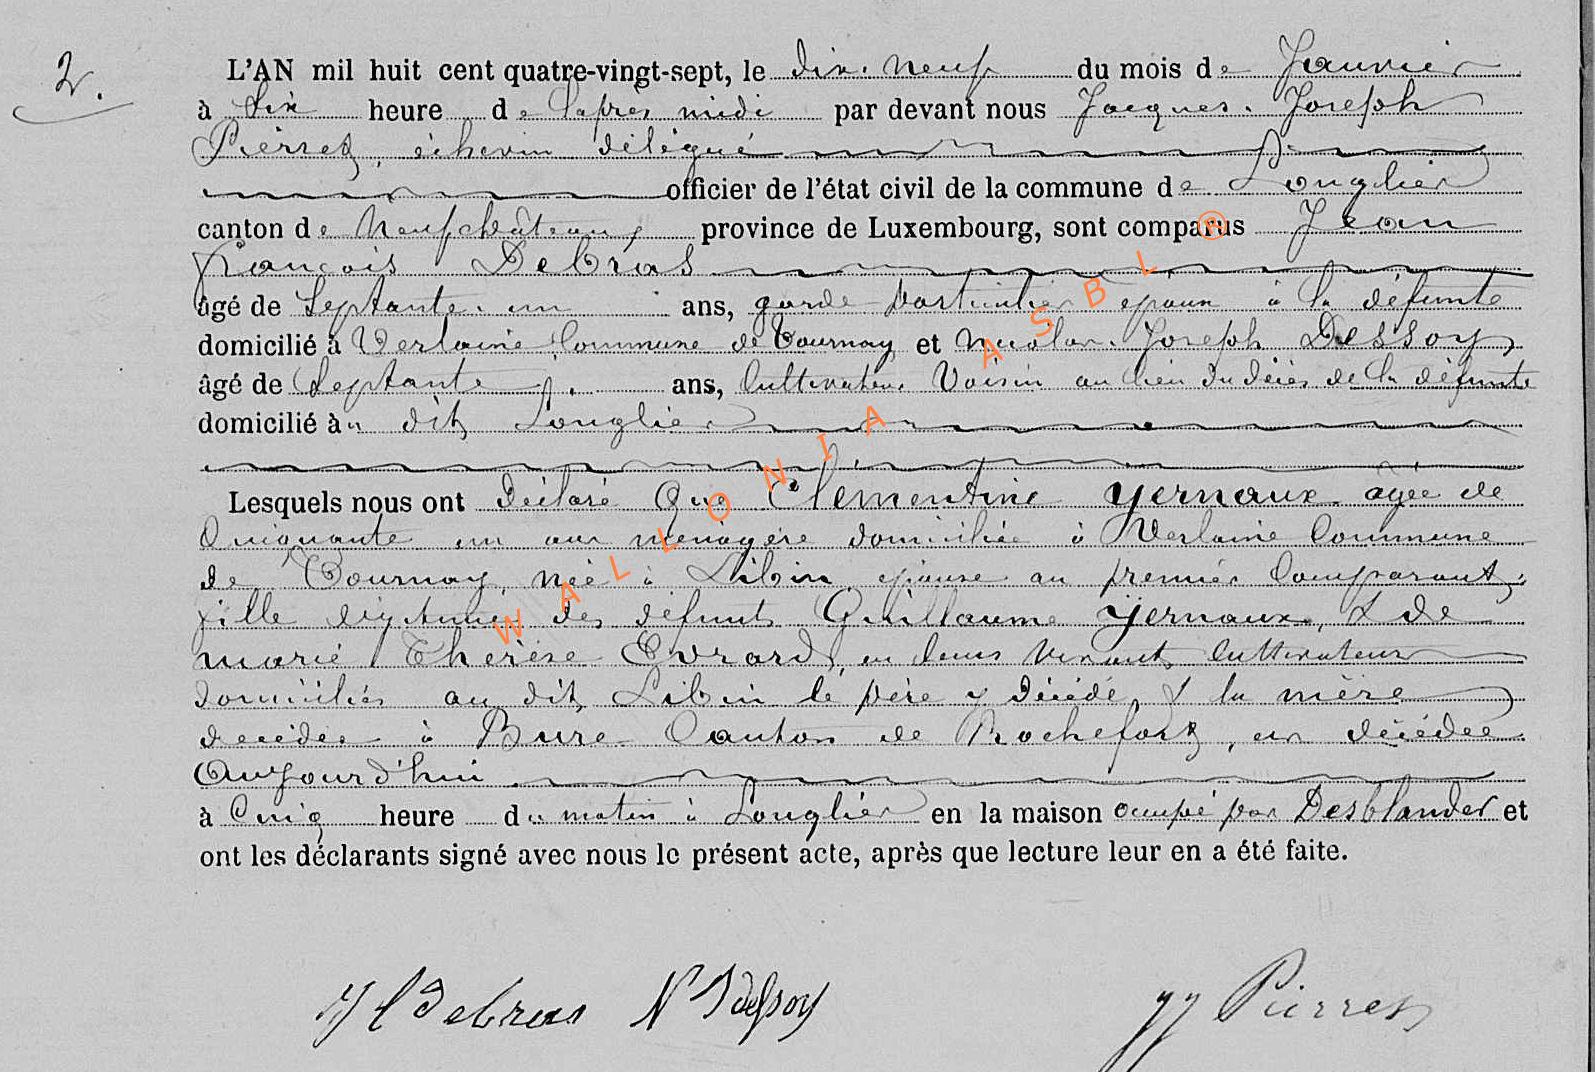 2.
L'AN mil huit cent quatre-vingt-sept, le dix-neuf du mois de Janvier
à Six heure de laprès midi par devant nous Jacques-Joseph
Pierret, échevin délégué
officier de l'état civil de la commune de Longlier
canton de Neufchâteau, province de Luxembourg, sont comparus Jean
François Debras
âgé de Septante-un ans, garde particulier époux à la défunte
domicilié à Verlaine Commune de Tournay et Nicolas-Joseph Dessoy
âgé de Septante ans, Cultivateur Voisin au lieu du décès de la défunte
domicilié au dit Longlier
Lesquels nous ont déclaré Que Clémentine Yernaux âgée de
Cinquante un ans ménagère domiciliée à Verlaine Commune
de Tournay, née à Libin épouse au premier Comparant,
fille légitime des défunts Guillaume Yernaux, & de
marie Thérèse Evrard, en leurs vivants Cultivateurs
domiciliés au dit Libin le père y décédé & la mère
décédée à Bure Canton de Rochefort, est décédée
Aujourd'hui
à Cinq heure du matin à Longlier en la maison occupé par Desblander et
ont les déclarants signé avec nous le présent acte, après que lecture leur en a été faite.
Debras N J deSsoy JJ Pierret
WALLONIA ASBL ®